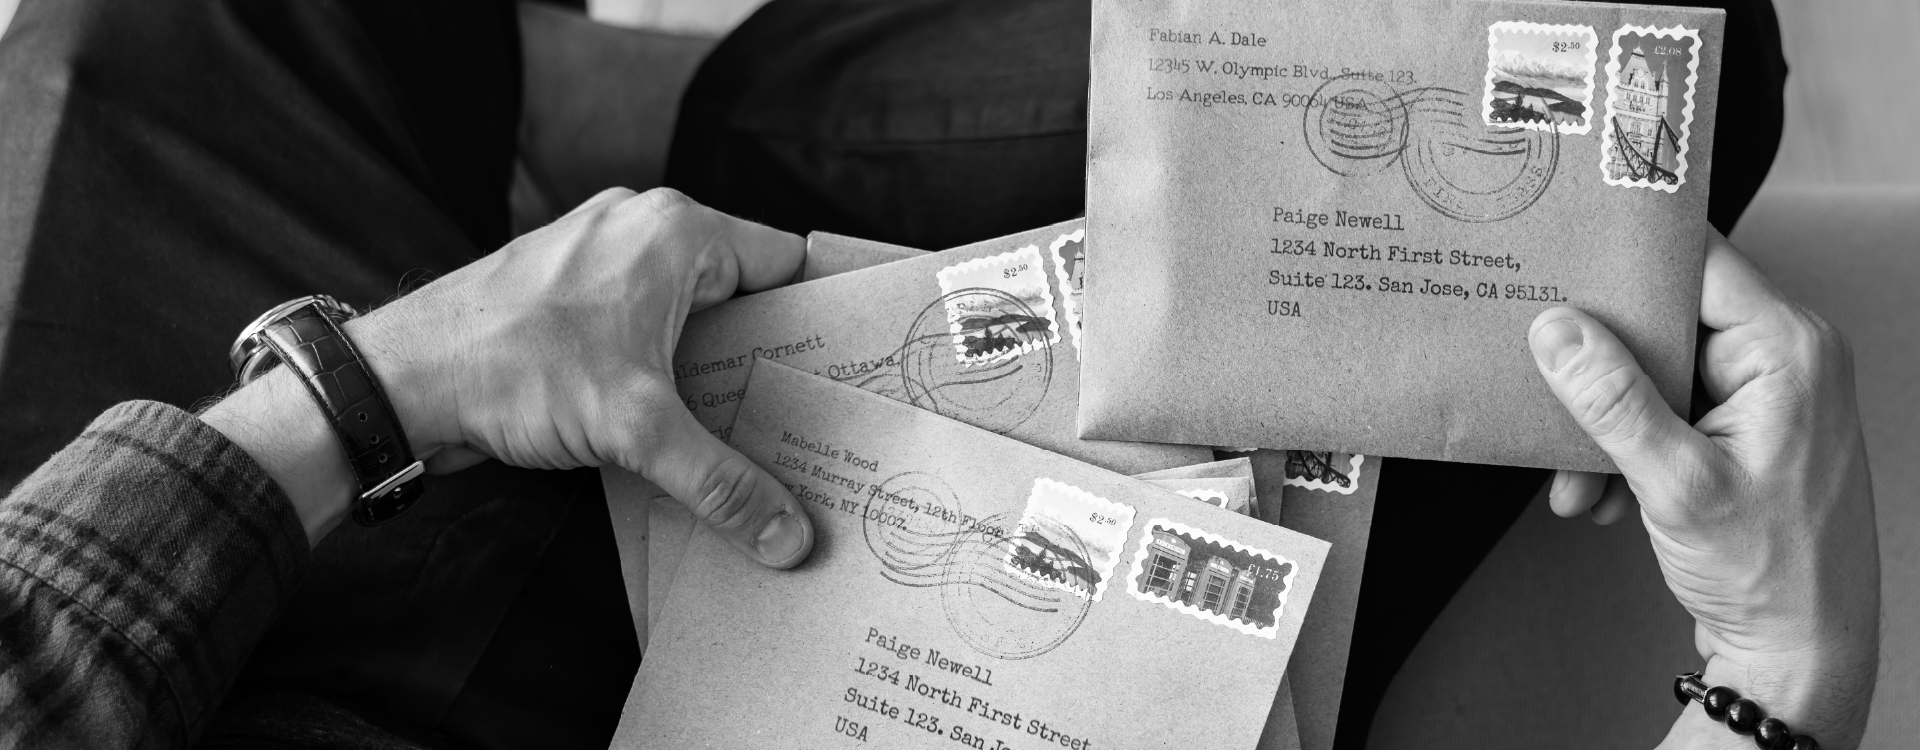 Fabian A. Dale
12345 W. Olympic Blvd., Suite 123.
Los Angeles, CA 90064 USA
$2.50
£2.08
FIRST CLASS
Paige Newell
1234 North First Street,
Suite 123. San Jose, CA 95131.
USA
$2.50
Cornett
Ottawa.
Mabelle Wood
1234 Murray Street, 12th Floor
York, NY 10007.
$2.50
£1.75
Paige Newell
1234 North First Street
Suite 123. San
USA